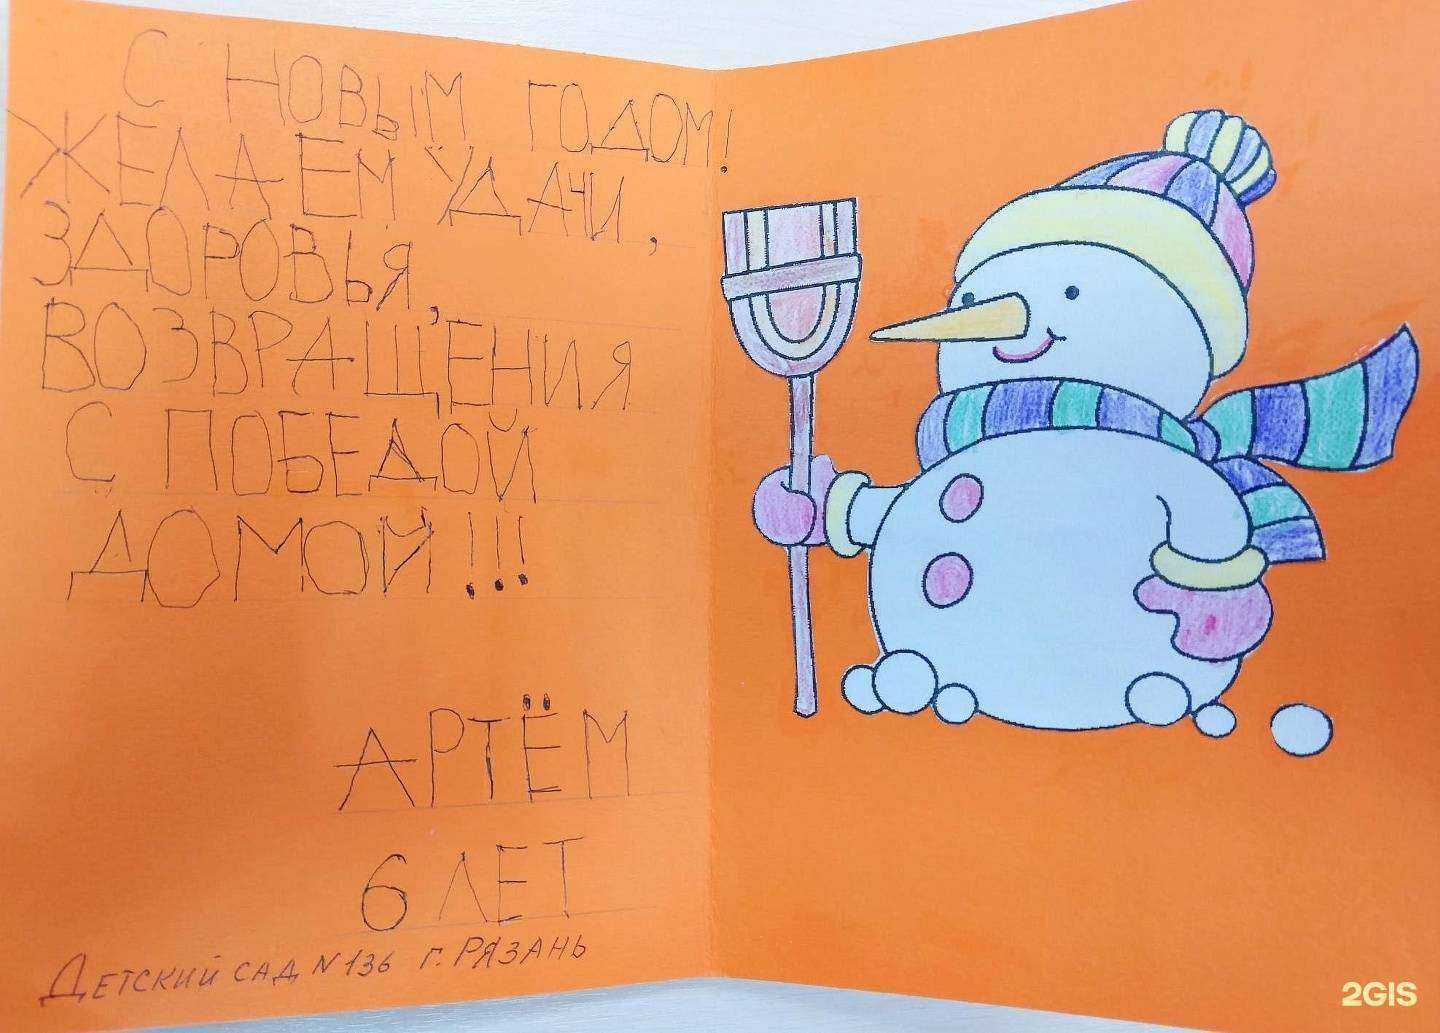 С НОВЫМ ГОДОМ!
ЖЕЛАЕМ УДАЧИ,
ЗДОРОВЬЯ,
ВОЗВРАЩЕНИЯ
С ПОБЕДОЙ
ДОМОЙ!!!
АРТЁМ
6 ЛЕТ
ДЕТСКИЙ САД N136 г. РЯЗАНЬ
2GIS